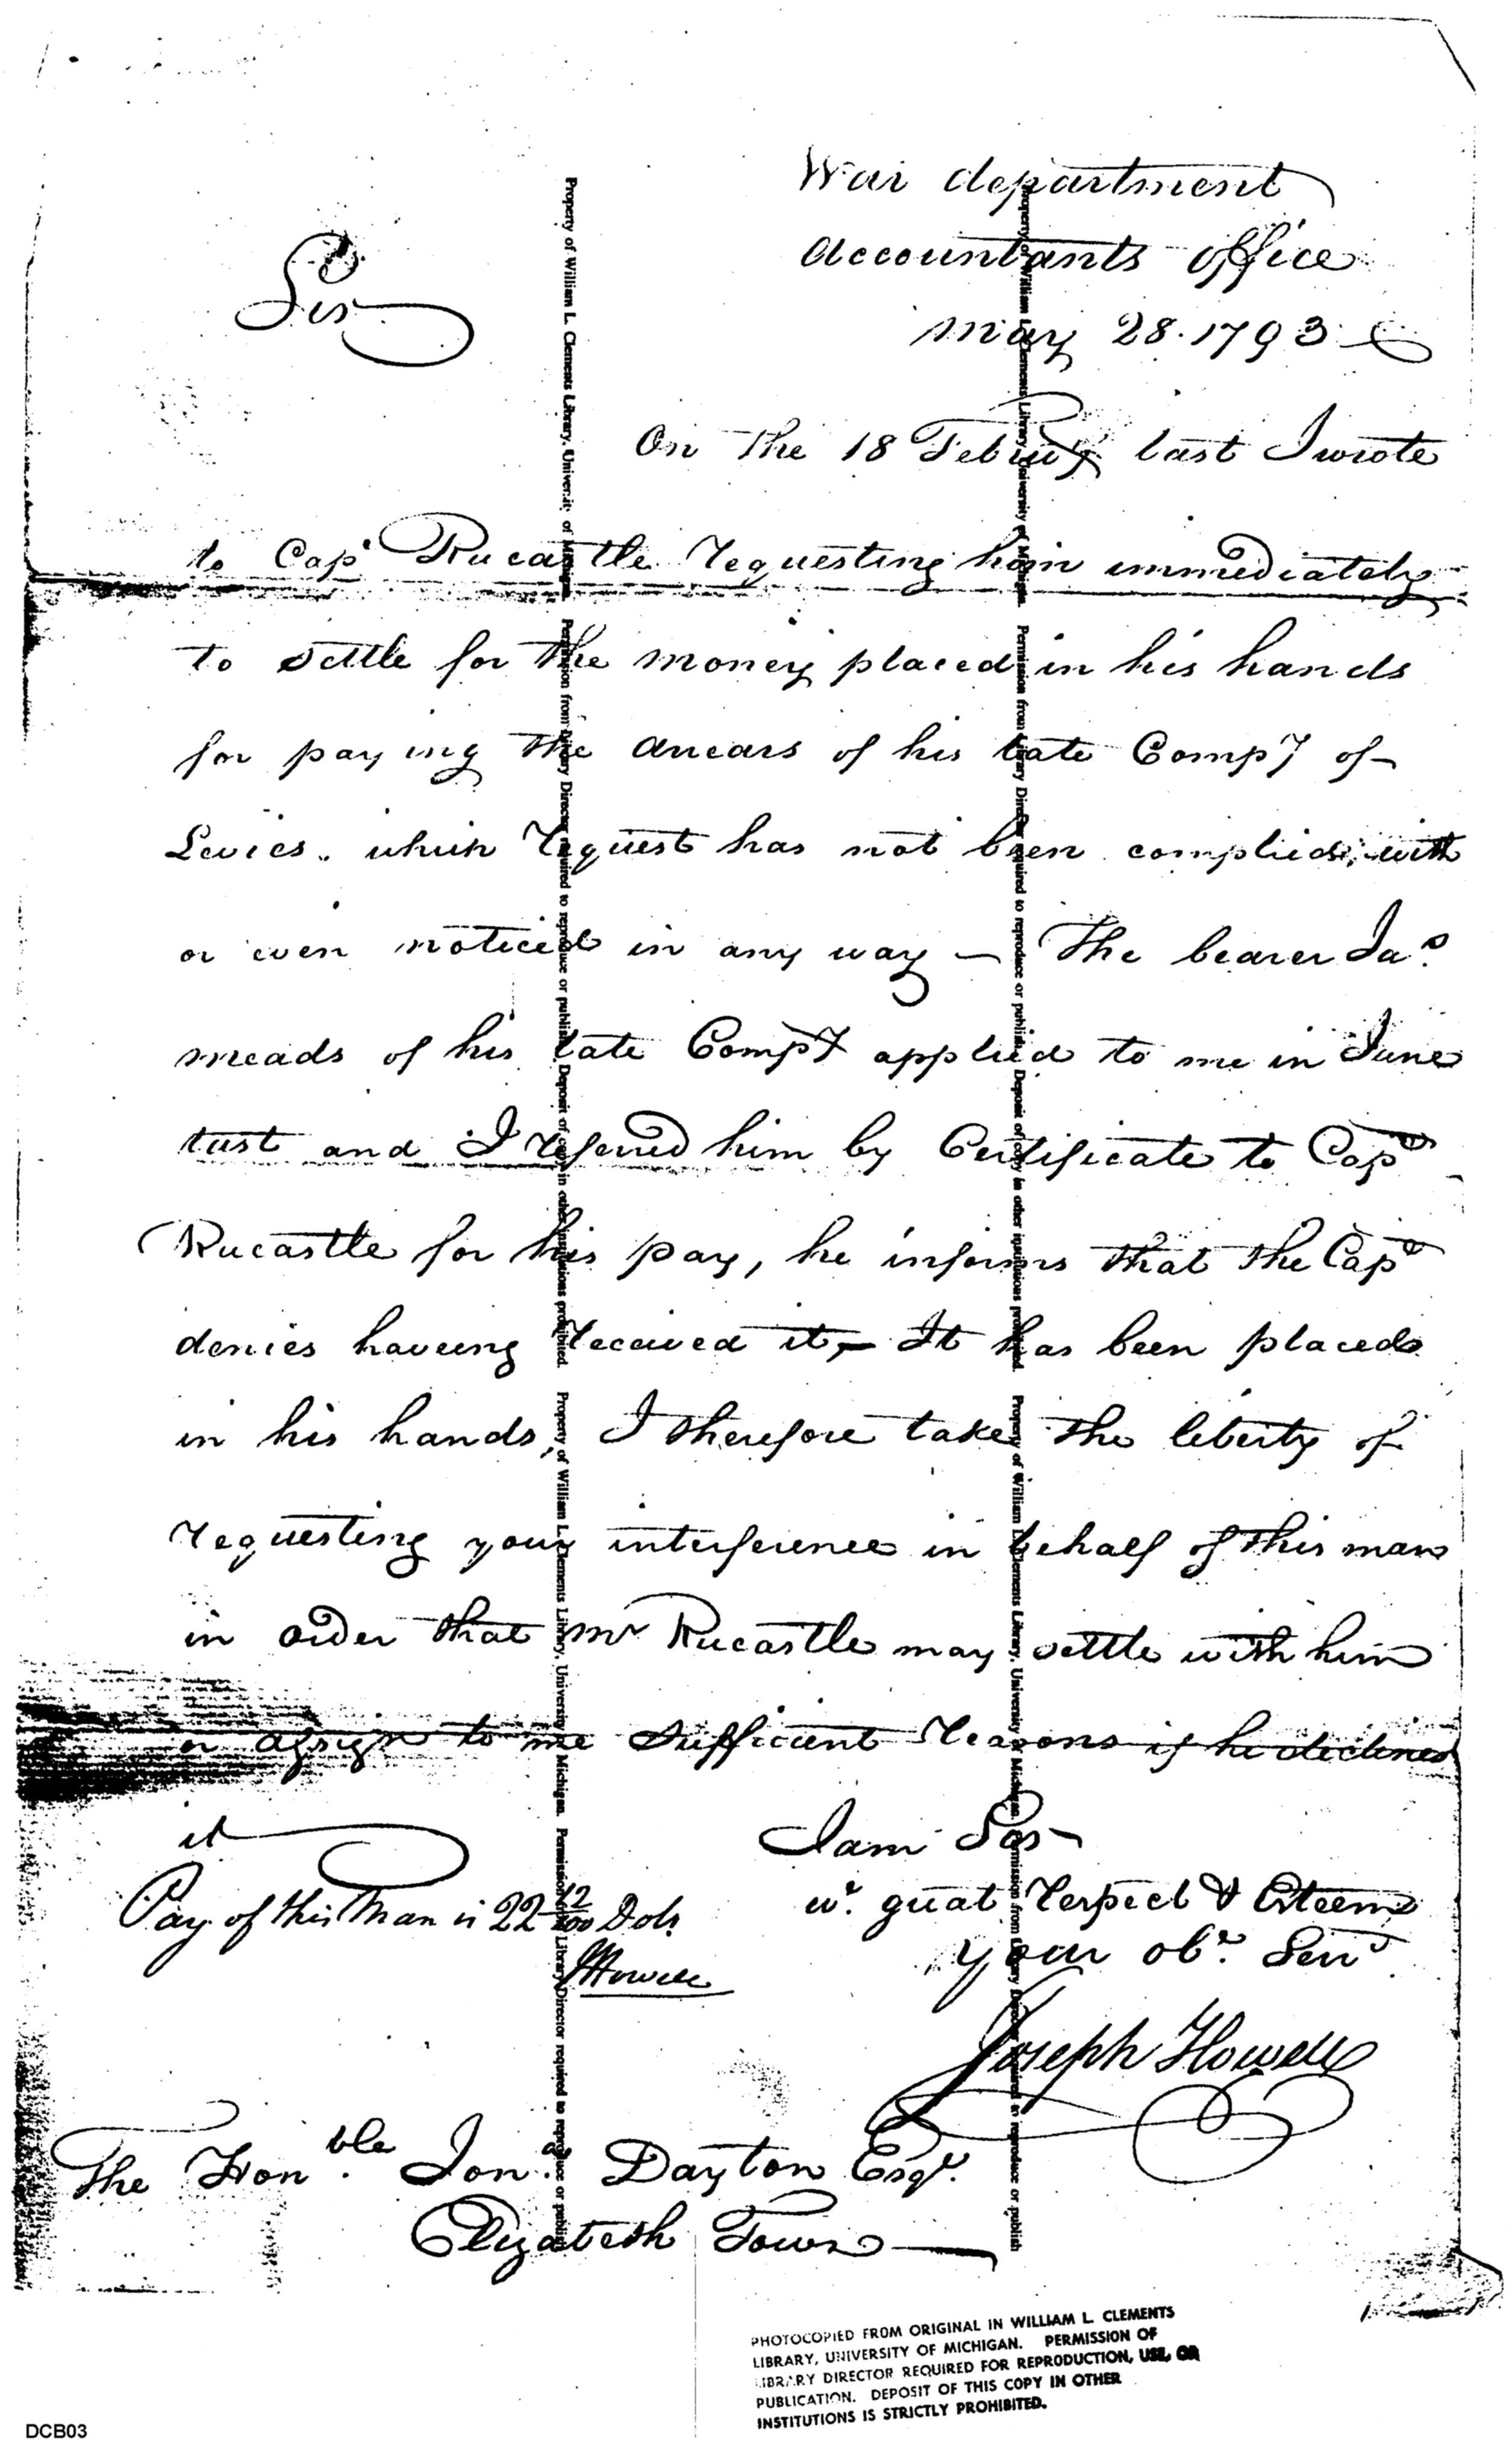 War department
Accountants office
May 28. 1793
Sir
On the 18 Febru'y last I wrote
to Cap' Rucastle requesting him immediately
to settle for the money placed in his hands
for paying the arrears of his late Compy of
Levies. which request has not been complied, with
or even noticed in any way — The bearer Jas.
Meads of his late Compy applied to me in June
last and I referred him by Certificate to Capt
Rucastle for his pay, he informs that the Capt
denies haveing received it, — It has been placed
in his hands, I therefore take the liberty of
requesting your interference in behalf of this man
in order that Mr Rucastle may settle with him
or assign to me sufficient reasons if he declines
it
I am Sir
wt. great respect & Esteem
your obt. Servt
Joseph Howell
Pay of this Man is 22 12/100 Dols.
JHowell
The Honble. Jona. Dayton Esqr.
Elizabeth Town
Property of William L. Clements Library, University of Michigan. Permission from Library Director required to reproduce or publish. Deposit of copy in other institutions prohibited. Property of William L. Clements Library, University of Michigan. Permission from Library Director required to reproduce or publish
Property of William L. Clements Library, University of Michigan. Permission from Library Director required to reproduce or publish. Deposit of copy in other institutions prohibited. Property of William L. Clements Library, University of Michigan. Permission from Library Director required to reproduce or publish
PHOTOCOPIED FROM ORIGINAL IN WILLIAM L. CLEMENTS
LIBRARY, UNIVERSITY OF MICHIGAN. PERMISSION OF
LIBRARY DIRECTOR REQUIRED FOR REPRODUCTION, USE, OR
PUBLICATION. DEPOSIT OF THIS COPY IN OTHER
INSTITUTIONS IS STRICTLY PROHIBITED.
DCB03